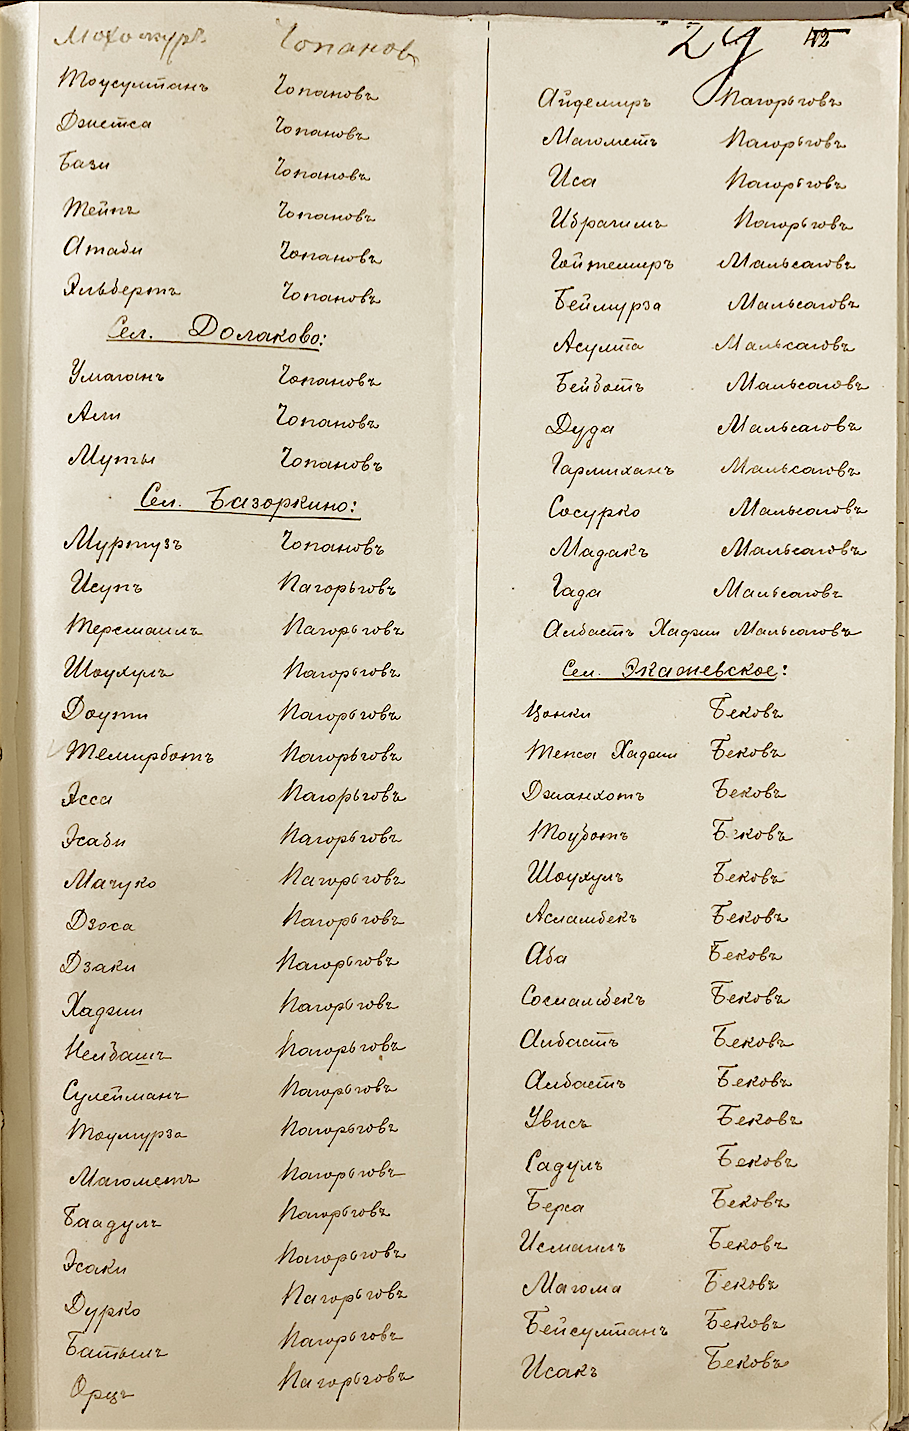 Мохомуръ Чопановъ
Тоусултанъ Чопановъ
Джетса Чопановъ
Бази Чопановъ
Тейпъ Чопановъ
Атаби Чопановъ
Эльбертъ Чопановъ
Сел. Долаково:
Умаганъ Чопановъ
Али Чопановъ
Муты Чопановъ
Сел. Базоркино:
Муртузъ Чопановъ
Исупъ Нагорѣговъ
Терсмаилъ Нагорѣговъ
Шоухулъ Нагорѣговъ
Доути Нагорѣговъ
Темирботъ Нагорѣговъ
Эсса Нагорѣговъ
Эсаби Нагорѣговъ
Мачуко Нагорѣговъ
Дзоса Нагорѣговъ
Дзаки Нагорѣговъ
Хаджи Нагорѣговъ
Нелбашъ Нагорѣговъ
Сулейманъ Нагорѣговъ
Тоумурза Нагорѣговъ
Магометъ Нагорѣговъ
Баадулъ Нагорѣговъ
Эсаки Нагорѣговъ
Дурко Нагорѣговъ
Батылъ Нагорѣговъ
Орцъ Нагорѣговъ
42
Айдемиръ Нагорѣговъ
Магометъ Нагорѣговъ
Иса Нагорѣговъ
Ибрагимъ Нагорѣговъ
Гойтемиръ Мальсаговъ
Беймурза Мальсаговъ
Асулта Мальсаговъ
Бейботъ Мальсаговъ
Дуда Мальсаговъ
Гармиханъ Мальсаговъ
Сосурко Мальсаговъ
Мадакъ Мальсаговъ
Гада Мальсаговъ
Албастъ Хаджи Мальсаговъ
Сел. Экажевское:
Цонки Бековъ
Тепса Хаджи Бековъ
Джанхотъ Бековъ
Тоуботъ Бековъ
Шоухулъ Бековъ
Асламбекъ Бековъ
Аба Бековъ
Сосламбекъ Бековъ
Албастъ Бековъ
Албастъ Бековъ
Увисъ Бековъ
Садулъ Бековъ
Берса Бековъ
Исмаилъ Бековъ
Магома Бековъ
Бейсултанъ Бековъ
Исакъ Бековъ